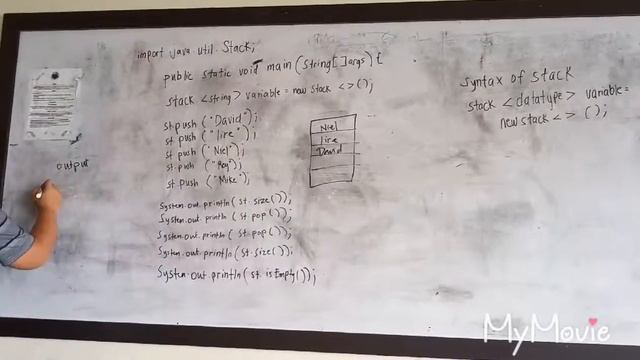 import java.util.Stack;
public static void main (String[]args) {
stack <string> variable = new stack <> ();
st.push ("David");
st push ("lire");
st push ("Niel");
st.push ("Roy");
st push ("Mike");
System.out.println( st.size());
System.out.println ( st pop());
System.out.println( st.pop());
System.out.println(st.size());
System.out.println( st.isEmpty());
Niel
lire
David
syntax of stack
stack <datatype> variable =
new stack <> ();
output
MyMovie